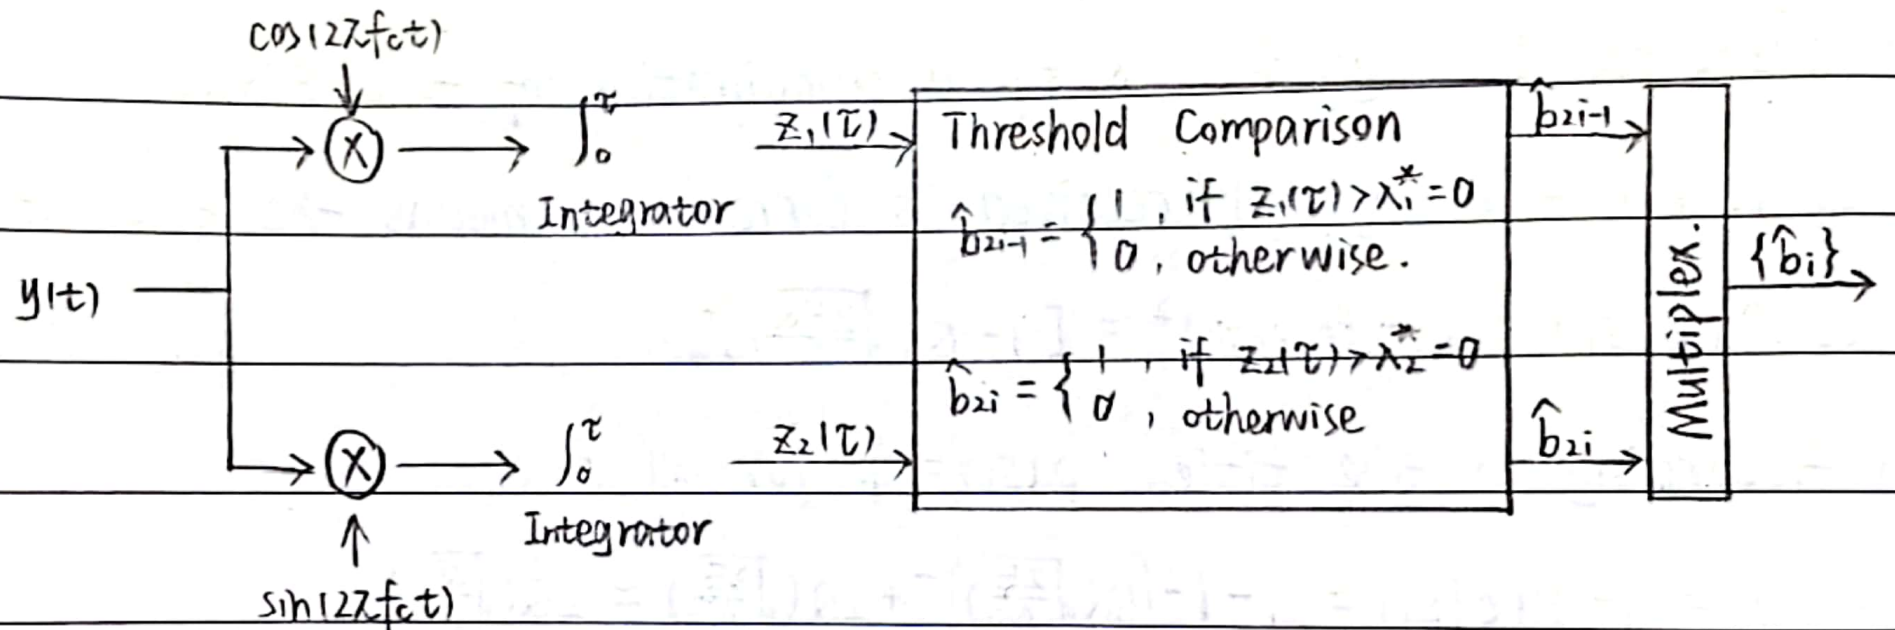 cos(2πfct)
∫₀^τ
Integrator
z₁(τ)
y(t)
sin(2πfct)
∫₀^τ
Integrator
z₂(τ)
Threshold Comparison
b̂₂ᵢ₋₁ = { 1, if z₁(τ) > λ₁* = 0
0, otherwise.
b̂₂ᵢ = { 1, if z₂(τ) > λ₂* = 0
0, otherwise
b̂₂ᵢ₋₁
b̂₂ᵢ
Multiplex.
{b̂ᵢ}